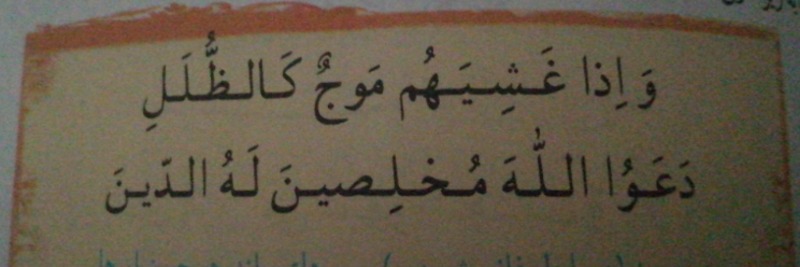 وَ اِذا غَشِیَهُم مَوجٌ کَالظُّلَلِ
دَعَوُا اللّٰهَ مُخلِصینَ لَهُ الدّینَ